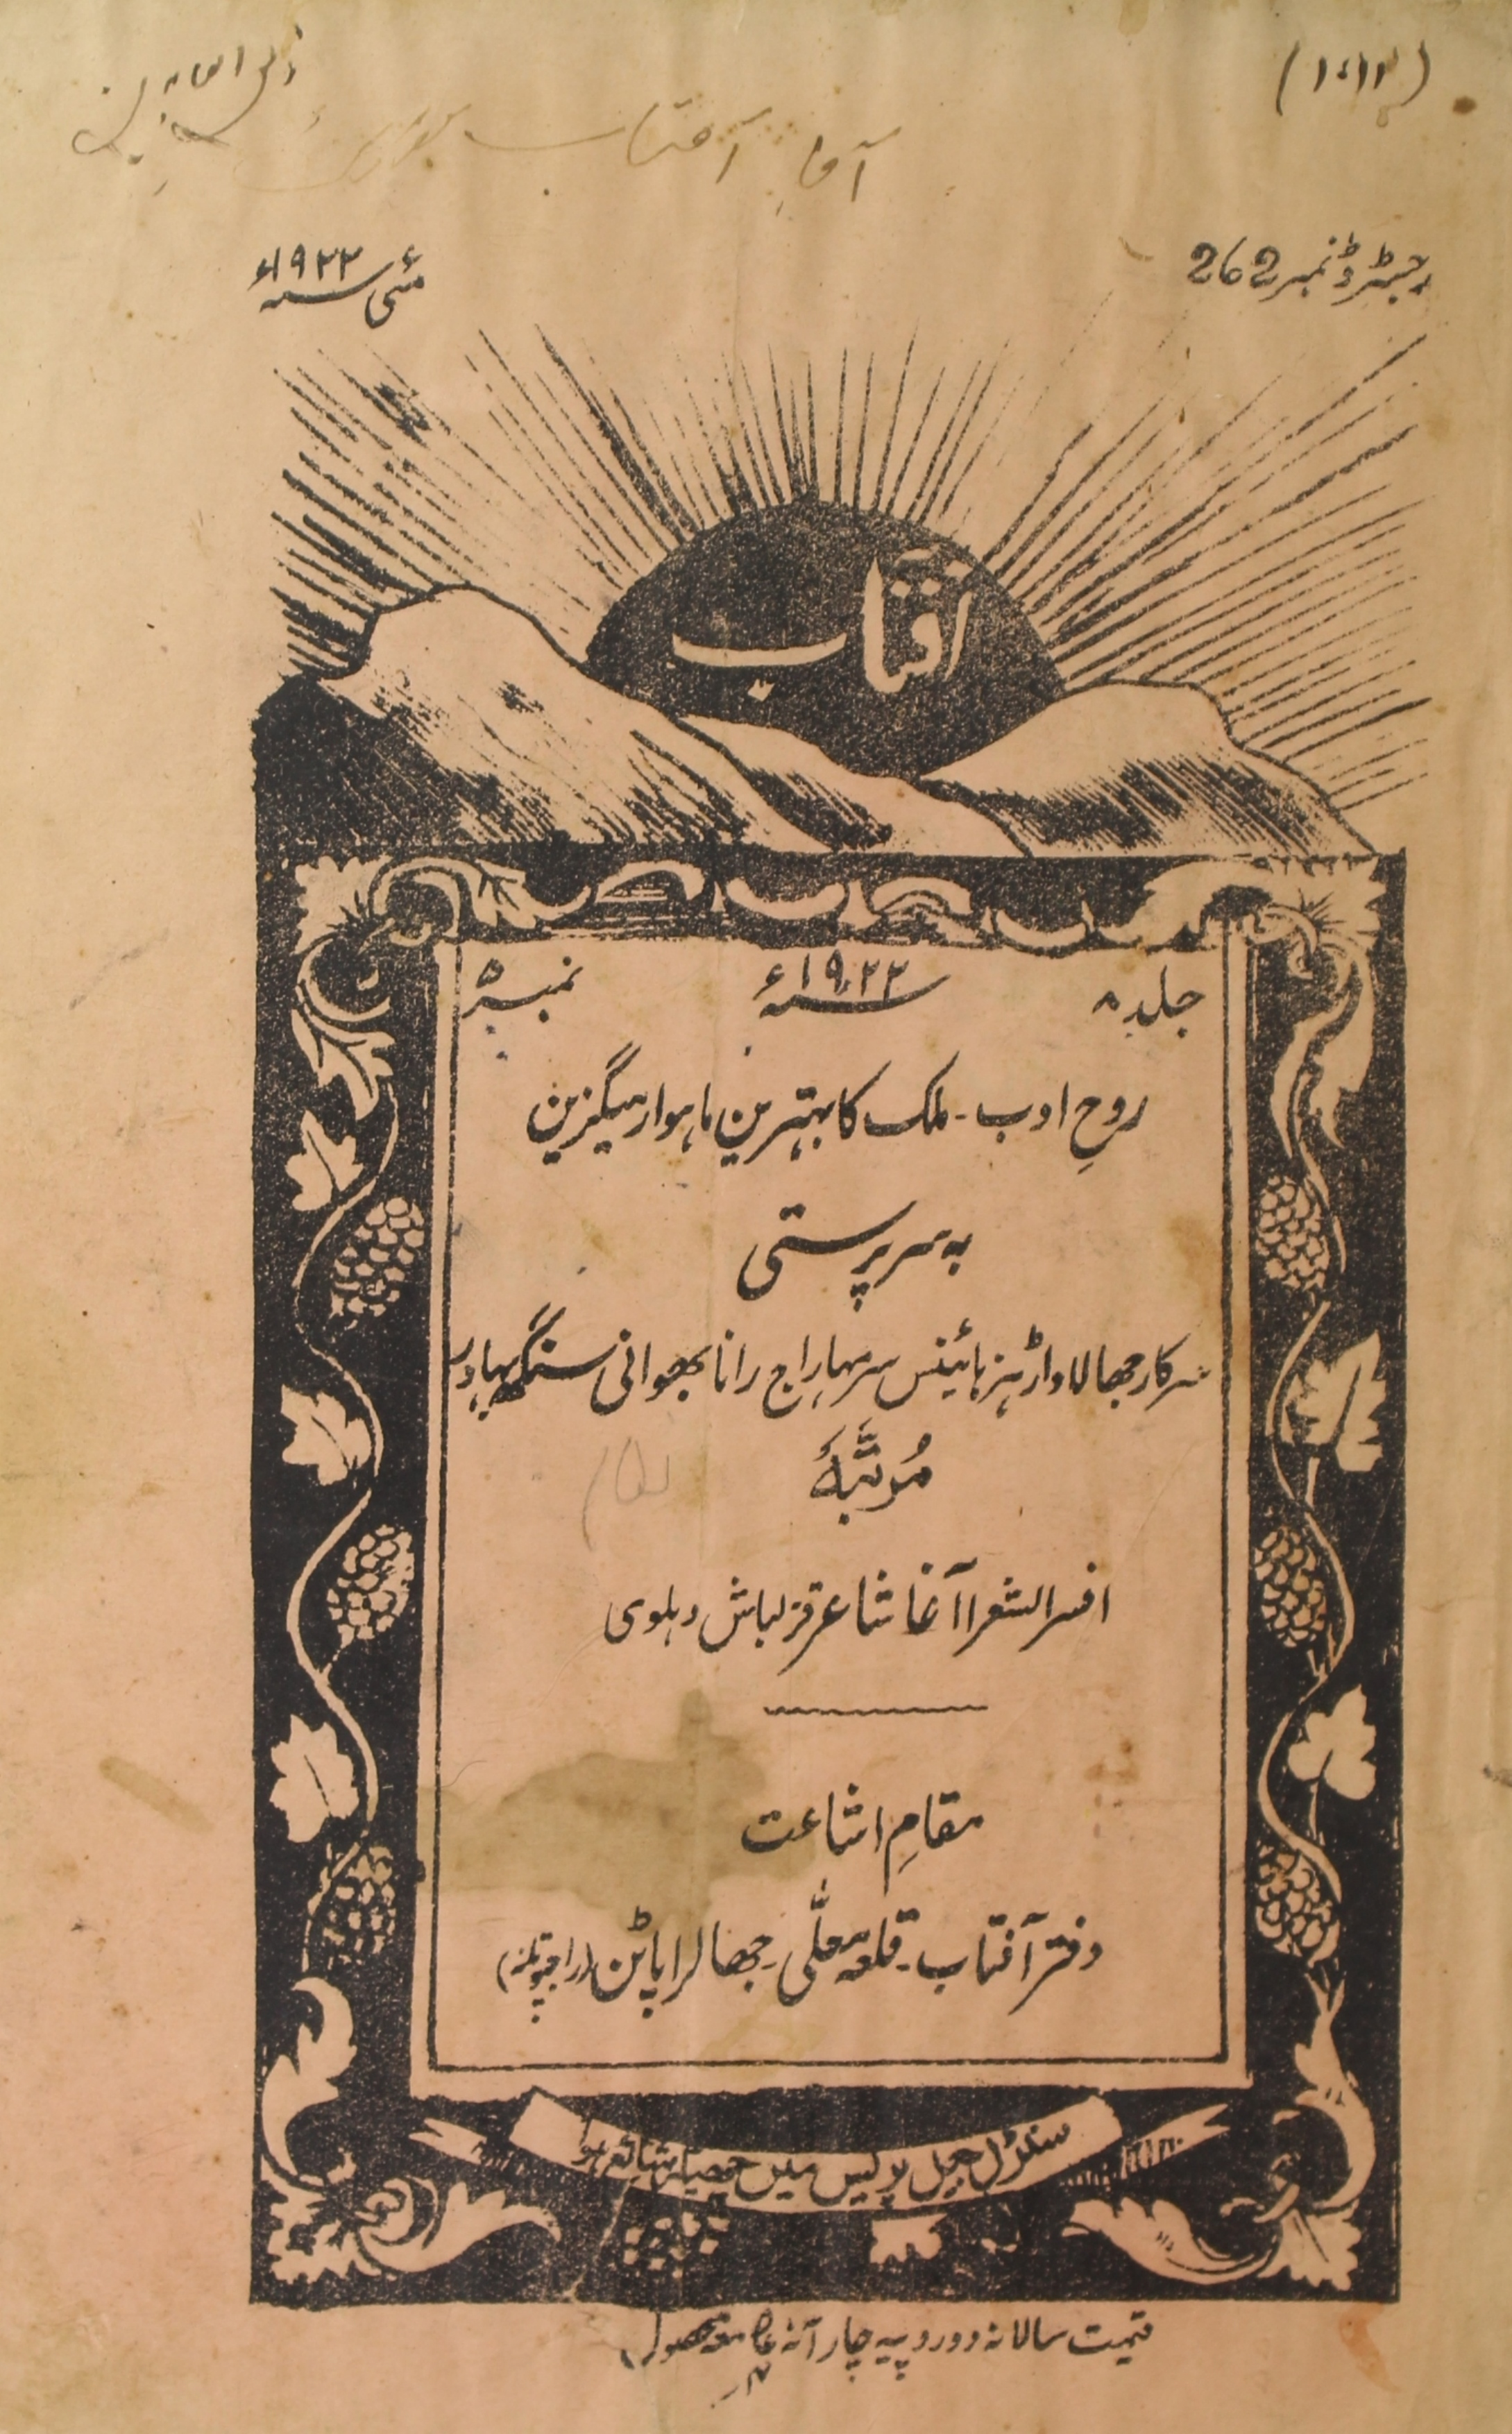 آفتاب
رجسٹرڈ نمبر 262
مئی سنہ ۱۹۲۲ء
آفتاب
جلد ۸ سنہ ۱۹۲۲ء نمبر ۵
روحِ ادب - ملک کا بہترین ماہوار میگزین
بہ سرپرستی
سرکار جھالاواڑ ہزہائینس سر مہاراج رانا بھوانی سنگھ بہادر
مُرتَّبَۂ
افسر الشعرا آغا شاعر قزلباش دہلوی
مقامِ اشاعت
دفتر آفتاب - قلعہ معلّٰی جھالراپاٹن (راجپوتانہ)
سنٹرل جیل پریس میں چھپکر شائع ہوا
قیمت سالانہ دو روپیہ چار آنہ مع محصول